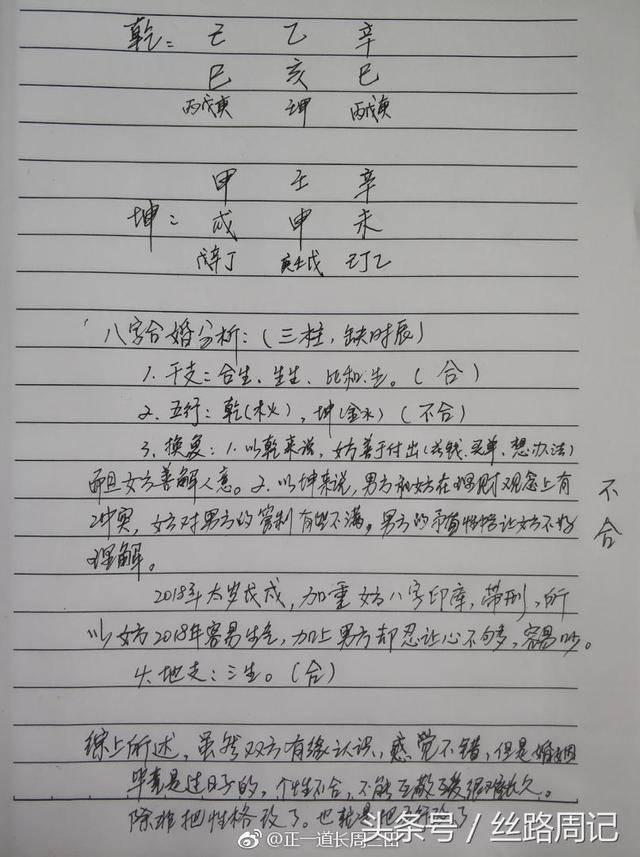 乾： 己 乙 辛
巳 亥 巳
丙戊庚 壬甲 丙戊庚
甲 壬 辛
坤： 戌 申 未
戊辛丁 庚壬戊 己丁乙
八字合婚分析：（三柱，缺时辰）
1. 干支：合生、生生、比和、生。（合）
2. 五行：乾（木火），坤（金水）（不合）
3. 换象：1. 以乾来说，女方善于付出（出钱、买单、想办法）
而且女方善解人意。2. 以坤来说，男方和女方在理财观念上有
冲突，女方对男方的管制有些不满。男方的矛盾性格让女方不好
理解。
不合
2018年太岁戊戌，加重女方八字印库，带刑，所
以女方2018年容易生气，加上男方却忍让心不够多，容易吵。
4. 地支：三生。（合）
综上所述，虽然双方有缘认识，感觉不错，但是婚姻
毕竟是过日子的，个性不合，不能互敬互爱很难长久。
除非把性格改了。也就是把
头条号／丝路周记
@正一道长周三山